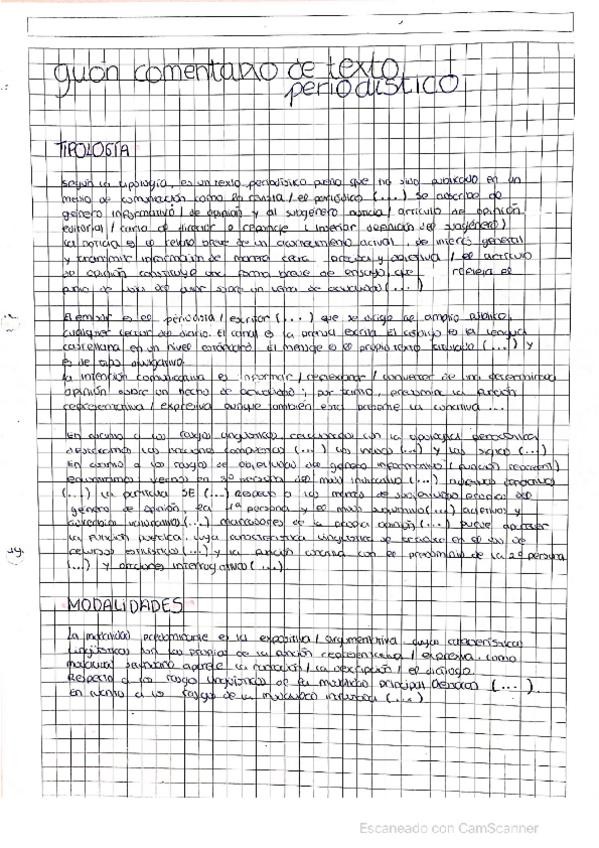 guión comentario de texto
periodístico
TIPOLOGÍA
Según la tipología, es un texto periodístico puesto que ha sido publicado en un
medio de comunicación como la revista / el periódico (...) Se adscribe al
género informativo / de opinión y al subgénero noticia / artículo de opinión
editorial / carta al director o reportaje (insertar definición del subgénero)
la noticia es el relato breve de un acontecimiento actual, de interés general
y transmite información de manera clara, precisa y objetiva / el artículo
de opinión constituye una forma breve de ensayo, que refleja el
punto de vista del autor sobre un tema de actualidad (...)
El emisor es el periodista / escritor (...) que se dirige al amplio público,
cualquier lector de diario. El canal es la prensa escrita. El código es la lengua
castellana en un nivel estándar. El mensaje es el propio texto (...) y
es de tipo divulgativo.
La intención comunicativa es informar / reflexionar / convencer de una determinada
opinión sobre un hecho de actualidad; por tanto, predomina la función
representativa / expresiva aunque también está presente la conativa ...
En cuanto a los rasgos lingüísticos, relacionados con la tipología periodística
destacamos las oraciones complejas (...) los (...) y las siglas (...)
En cuanto a los rasgos de objetividad del género informativo (función represent)
encontramos verbos en 3ª persona del modo indicativo (...) adjetivos (...)
(...) la partícula SE (...) respecto a las marcas de subjetividad propias del
género de opinión, la 1ª persona y el modo subjuntivo (...) adjetivos y
adverbios valorativos (...) marcadores de la propia opinión (...) puede aparecer
la función poética, cuya característica lingüística se traduce en el uso de
recursos estilísticos (...) y la función conativa con el predominio de la 2ª persona
(...) y oraciones interrogativas (...)
MODALIDADES
La modalidad predominante es la expositiva / argumentativa cuyas características
lingüísticas son las propias de la función representativa / expresiva, como
modalidad secundaria aparece la narración / la descripción / el diálogo.
Respecto a los rasgos lingüísticos de la modalidad principal (...)
en cuanto a los rasgos de la modalidad (...)
Escaneado con CamScanner